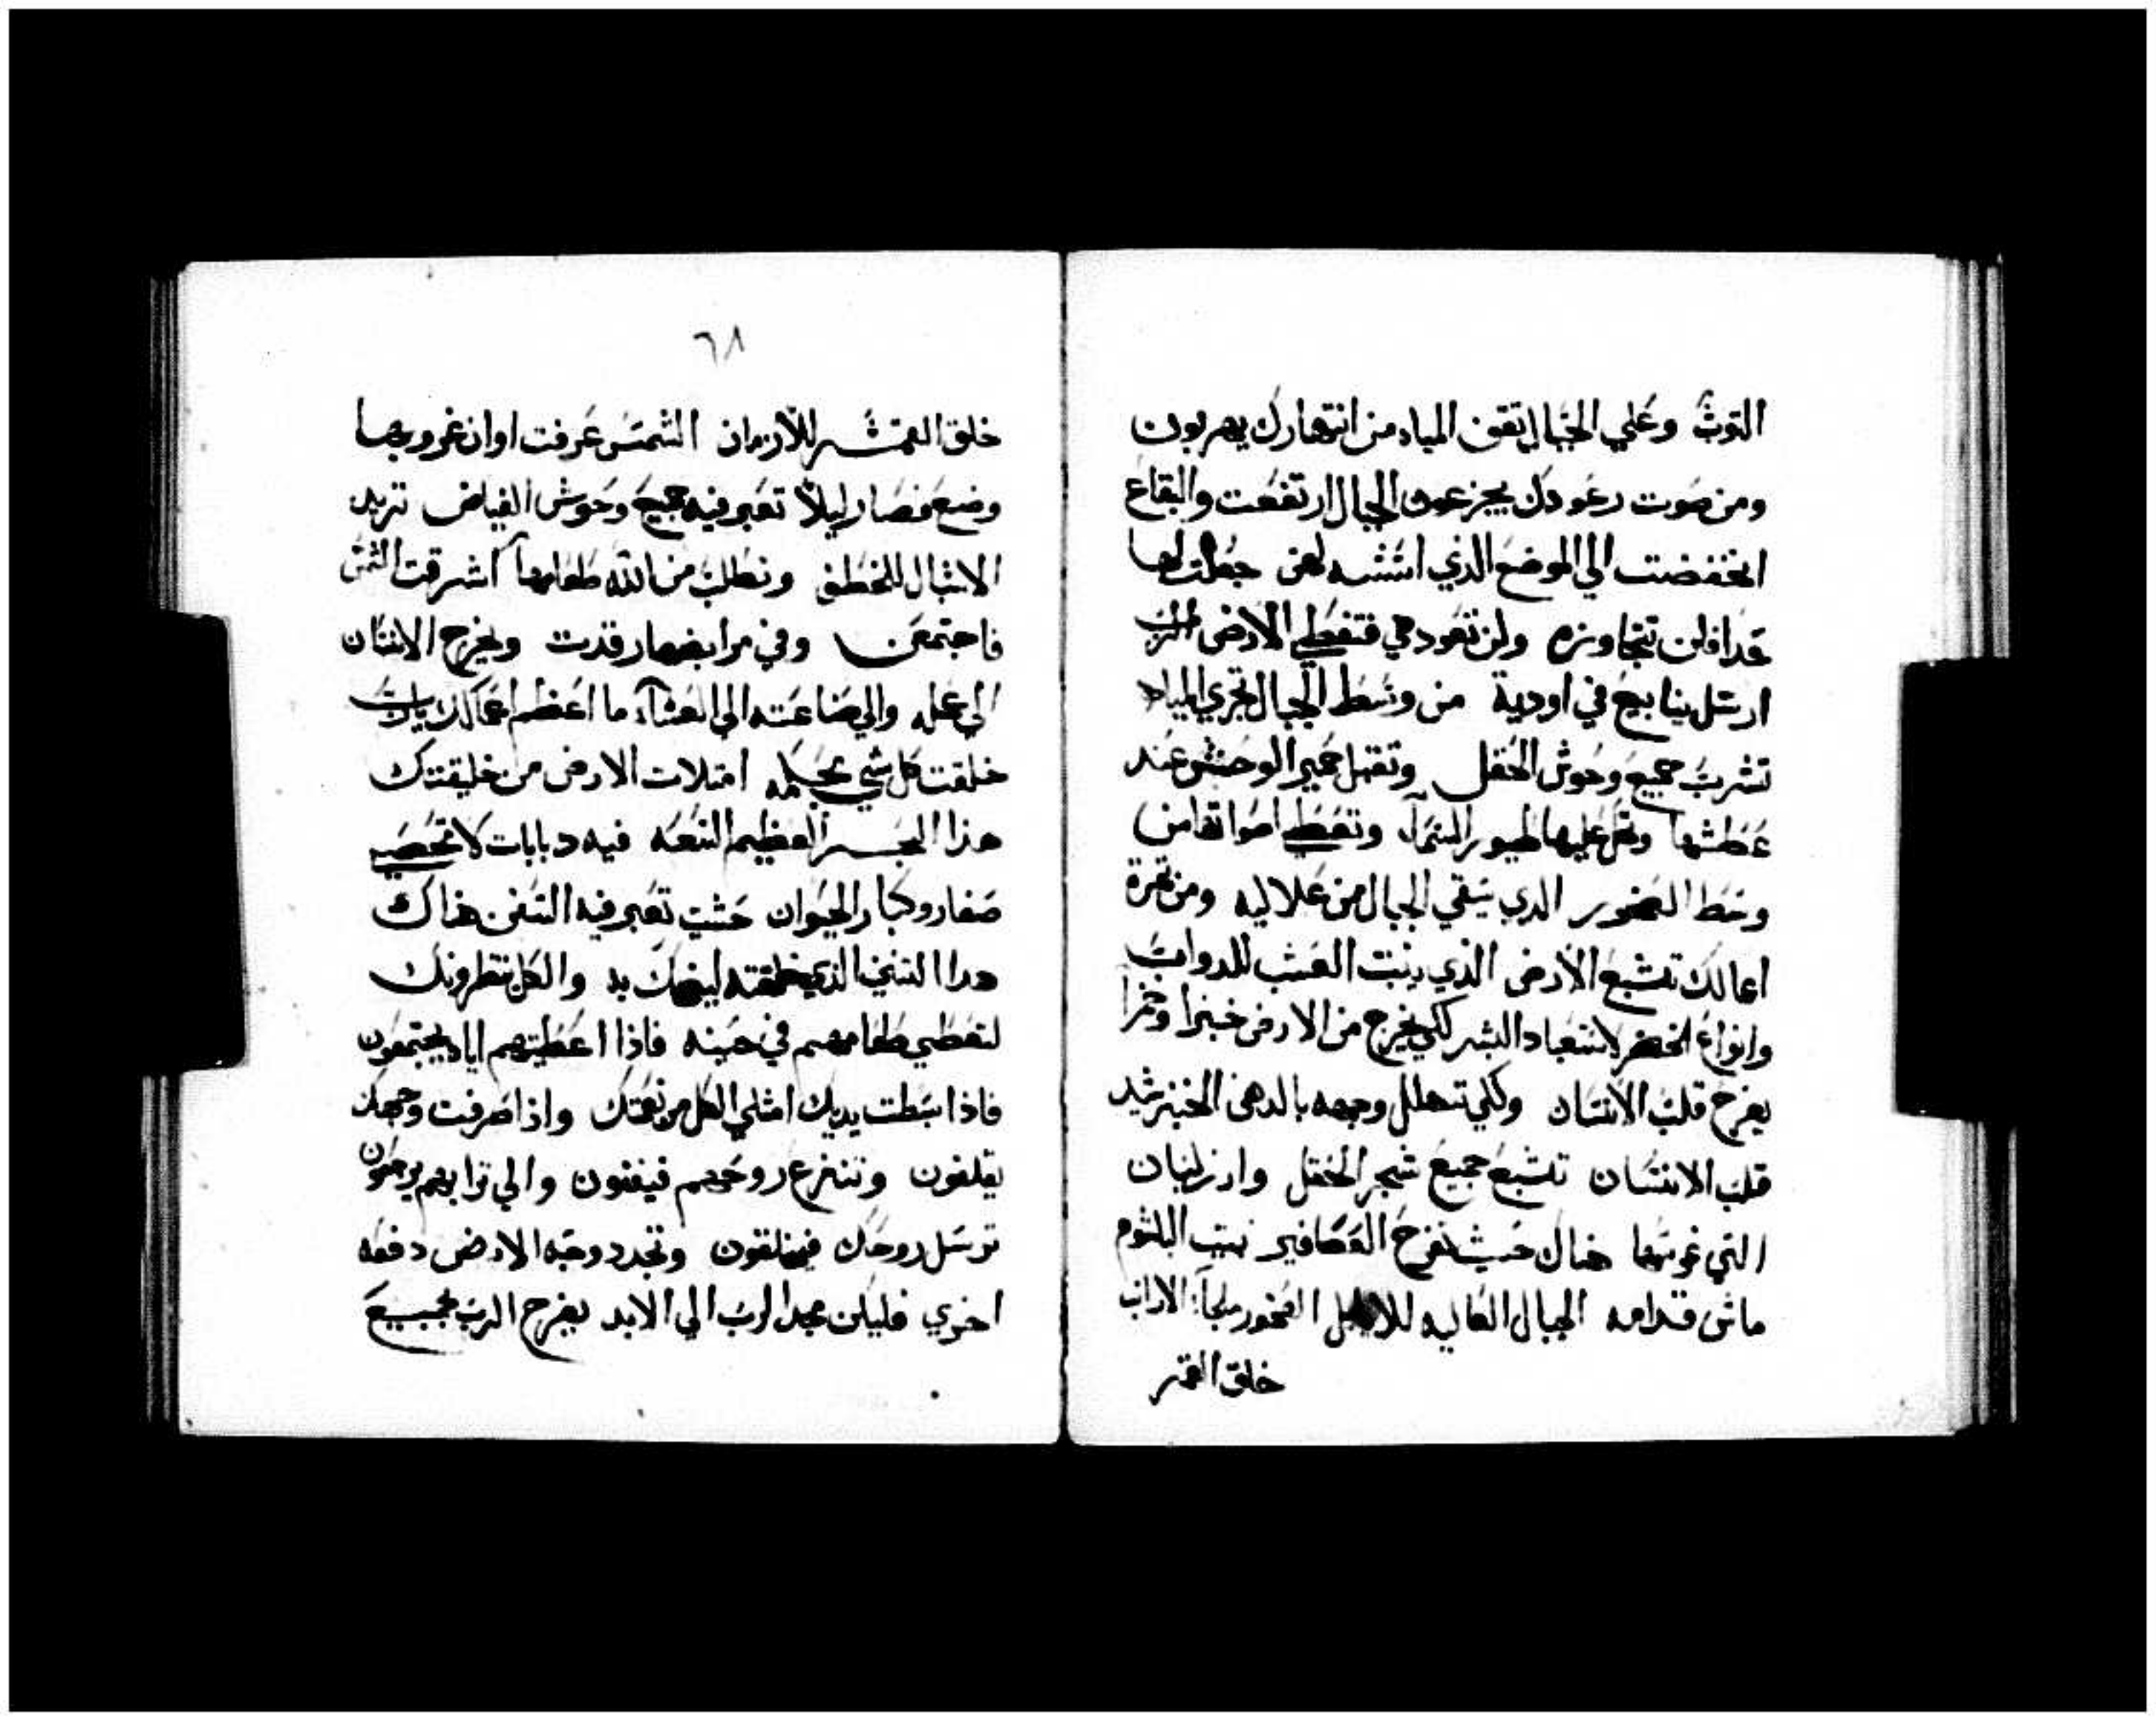 التوب وعلي الجبال تقف المياه من انتهارك يهربون
ومن صوت رعودك يجزعون الجبال ارتفعت والبقاع
انخفضت الي الموضع الذي اسسته لهن جعلت لها
حدا فلن تتجاوزه ولن تعود هي فتغطي الارض
ارسل ينابيع في اودية من وسط الجبال تجري المياه
تشرب جميع وحوش الحقل وتقبل حمير الوحش عند
عطشها وتحل عليها طيور السما وتعطي اصواتها من
وسط الصخور الذي يسقي الجبال من علاليه ومن ثمرة
اعمالك تشبع الارض الذي ينبت العشب للدواب
وانواع الخضر لاستعباد البشر لكي يخرج من الارض خبزا وخمرا
يفرح قلب الانسان ولكي تتهلل وجهه بالدهن الخبز يشد
قلب الانسان تشبع جميع شجر الحقل وارز لبنان
التي غرستها هناك حيث تفرخ العصافير بيت البلشوم
ماش قدامه الجبال العاليه للايل الصخور ملجأ الارانب
خلق القمر
٦٨
خلق القمر للازمان الشمس عرفت اوان غروبها
وضع فصار ليلا تعبر فيه جميع وحوش الغياض تزير
الاشبال للخطف وتطلب من الله طعامها اشرقت الشمس
فاجتمعن وفي مرابضها رقدت ويخرج الانسان
الي عمله والي صناعته الي العشاء ما اعظم اعمالك يارب
خلقت كل شي بحكمه امتلات الارض من خليقتك
هذا البحر العظيم السعه فيه دبابات لا تحصي
صغار وكبار الحيوان حيث تعبر فيه السفن هناك
هدا التنين الذي خلقته ليضحك به والكل ينتظرونك
لتعطي طعامهم في حينه فاذا اعطيتهم اياه يجتمعون
فاذا بسطت يديك امتلي الكل من نعمتك واذا صرفت وجهك
يقلقون وتنزع روحهم فيفنون والي ترابهم يرجعون
ترسل روحك فيخلقون وتجدد وجه الارض دفعه
اخري فليكن مجد الرب الي الابد يفرح الرب بجميع